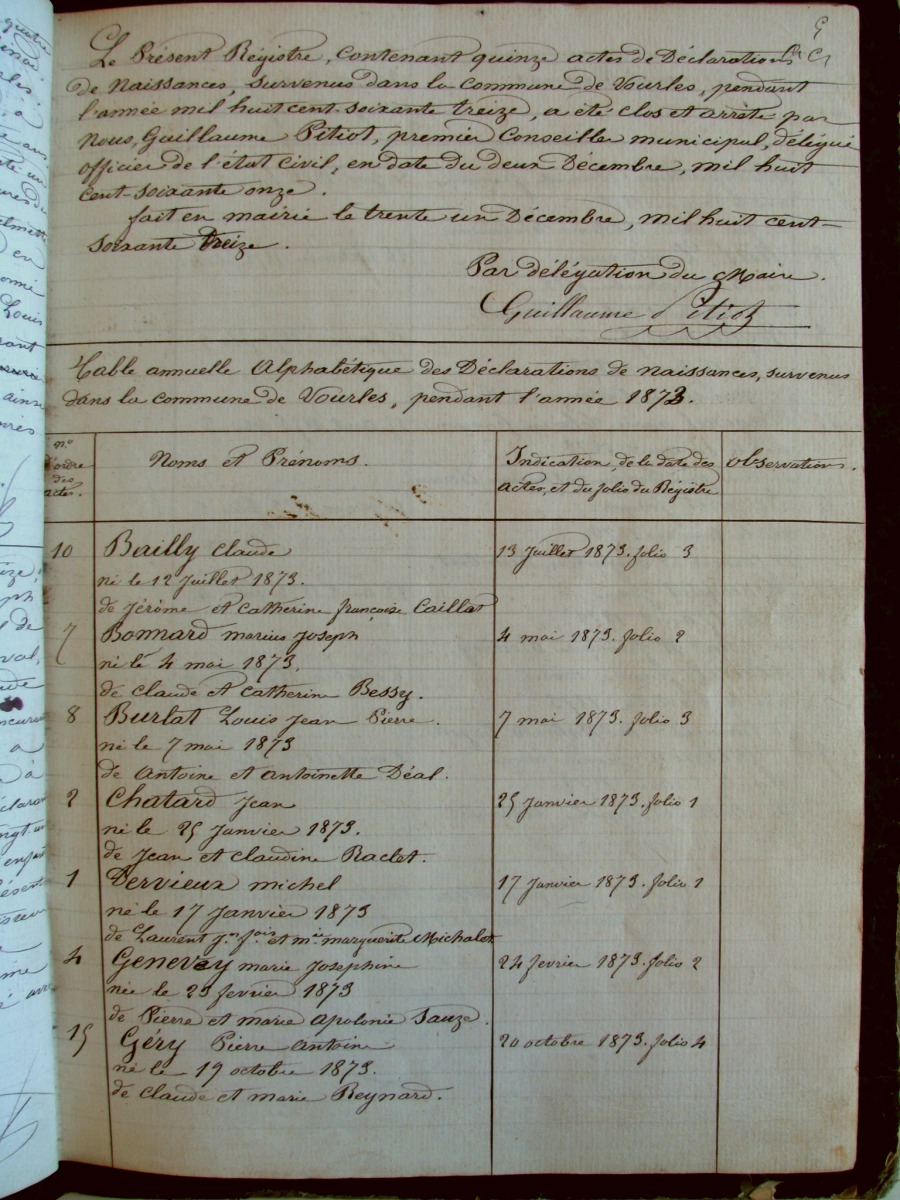 Le Présent Régistre, contenant quinze actes de Déclarations
de Naissances, survenus dans la commune de Vourles, pendant
l'année mil huit cent soixante treize, a été clos et arrêté par
Nous, Guillaume Pitiot, premier Conseiller municipal, délégué
officier de l'état civil, en date du deux Décembre, mil huit
cent-soixante onze.
fait en mairie le trente un Décembre, mil huit cent-
soixante treize.
Par délégation du Maire.
Guillaume Pitiot
Table annuelle Alphabétique des Déclarations de naissances, survenus
dans la commune de Vourles, pendant l'année 1873.
no
d'ordre
des
actes.
Noms et Prénoms.
Indication, de la date des
actes, et du folio du Régistre
observations.
10 Bailly claude 13 Juillet 1873. folio 3
né le 12 Juillet 1873.
de Jérôme et Catherine françoise Caillat
7 Bonnard marius Joseph 4 mai 1873. folio 2
né le 4 mai 1873.
de claude et Catherine Bessy.
8 Burlat Louis Jean Pierre. 7 mai 1873. folio 3
né le 7 mai 1873
de Antoine et antoinette Déal.
2 Chatard Jean 25 Janvier 1873. folio 1
né le 25 Janvier 1873.
de Jean et claudine Raclet.
1 Dervieux michel 17 Janvier 1873. folio 1
né le 17 Janvier 1873
de Laurent Jn fois et mie marguerite Michalet
4 Genevey marie Josephine 24 fevrier 1873. folio 2
née le 23 fevrier 1873
de Pierre et marie apolonie Sauze.
15 Géry Pierre antoine 20 octobre 1873. folio 4
né le 19 octobre 1873.
de claude et marie Reynard.